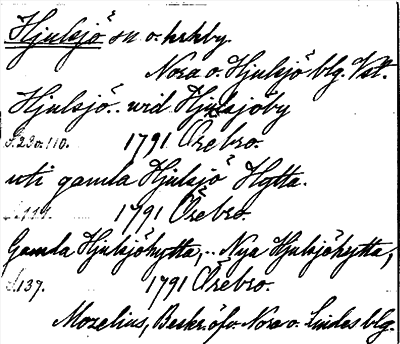 Hjulsjö sn o. kyrkby.
Nora o. Hjulsjö blg. Vstl.
Hjulsjö.. wid Hjulsjöby
S. 23 o. 110. 1791 Örebro.
uti gamla Hjulsjö Hytta.
1791 Örebro.
Gamla Hjulsjöhytta,.. Nya Hjulsjöhytta,
S. 137. 1791 Örebro.
Mozelius, Beskr. öfv. Nora o. Lindes blg.